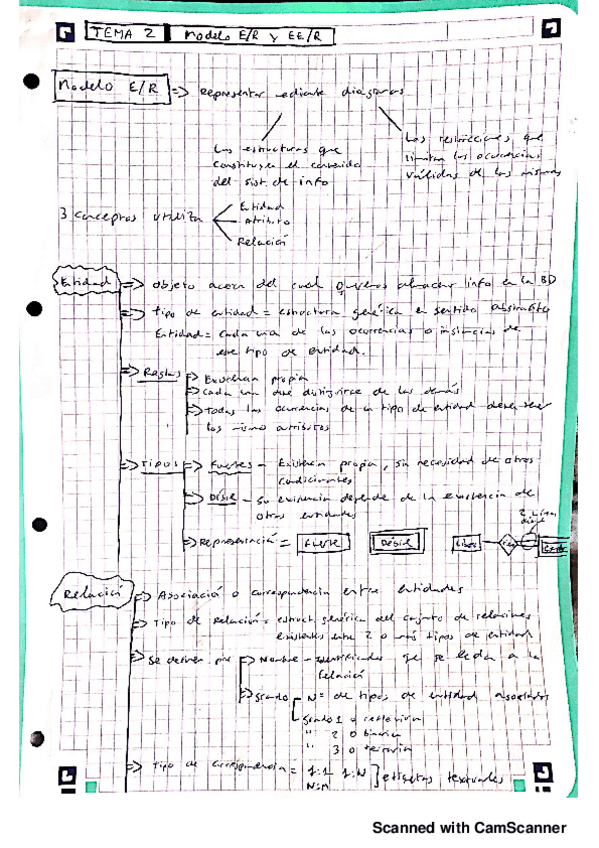 TEMA 2 | Modelo E/R y EE/R
Modelo E/R => Representar mediante diagramas
Las estructuras que
constituyen el contenido
del sist. de info
Las restricciones que
limitan las ocurrencias
válidas de las mismas
3 conceptos utiliza
Entidad
Atributo
Relación
Entidad => Objeto acerca del cual queremos almacenar info en la BD
=> Tipo de entidad = estructura genérica en sentido abstracto
Entidad = cada una de las ocurrencias o instancias de
ese tipo de entidad.
=> Reglas => Existencia propia
=> Cada una debe distinguirse de las demás
=> Todas las ocurrencias de un tipo de entidad deben tener
los mismo atributos
=> TIPOS => Fuertes - Existencia propia, sin necesidad de otros
condicionantes
=> Débil - Su existencia depende de la existencia de
otras entidades
=> Representación = FUERTE DÉBIL
Relación => Asociación o correspondencia entre entidades
=> Tipo de relación: estruct. genérica del conjunto de relaciones
existentes entre 2 o más tipos de entidad
=> Se definen por => Nombre - Identificador que se le da a la
relación
=> Grado - Nº de tipos de entidad asociados
Grado 1 o reflexiva
" 2 o binaria
" 3 o ternaria
=> Tipo de correspondencia = 1:1 1:N ] etiquetas textuales
N:M
Scanned with CamScanner